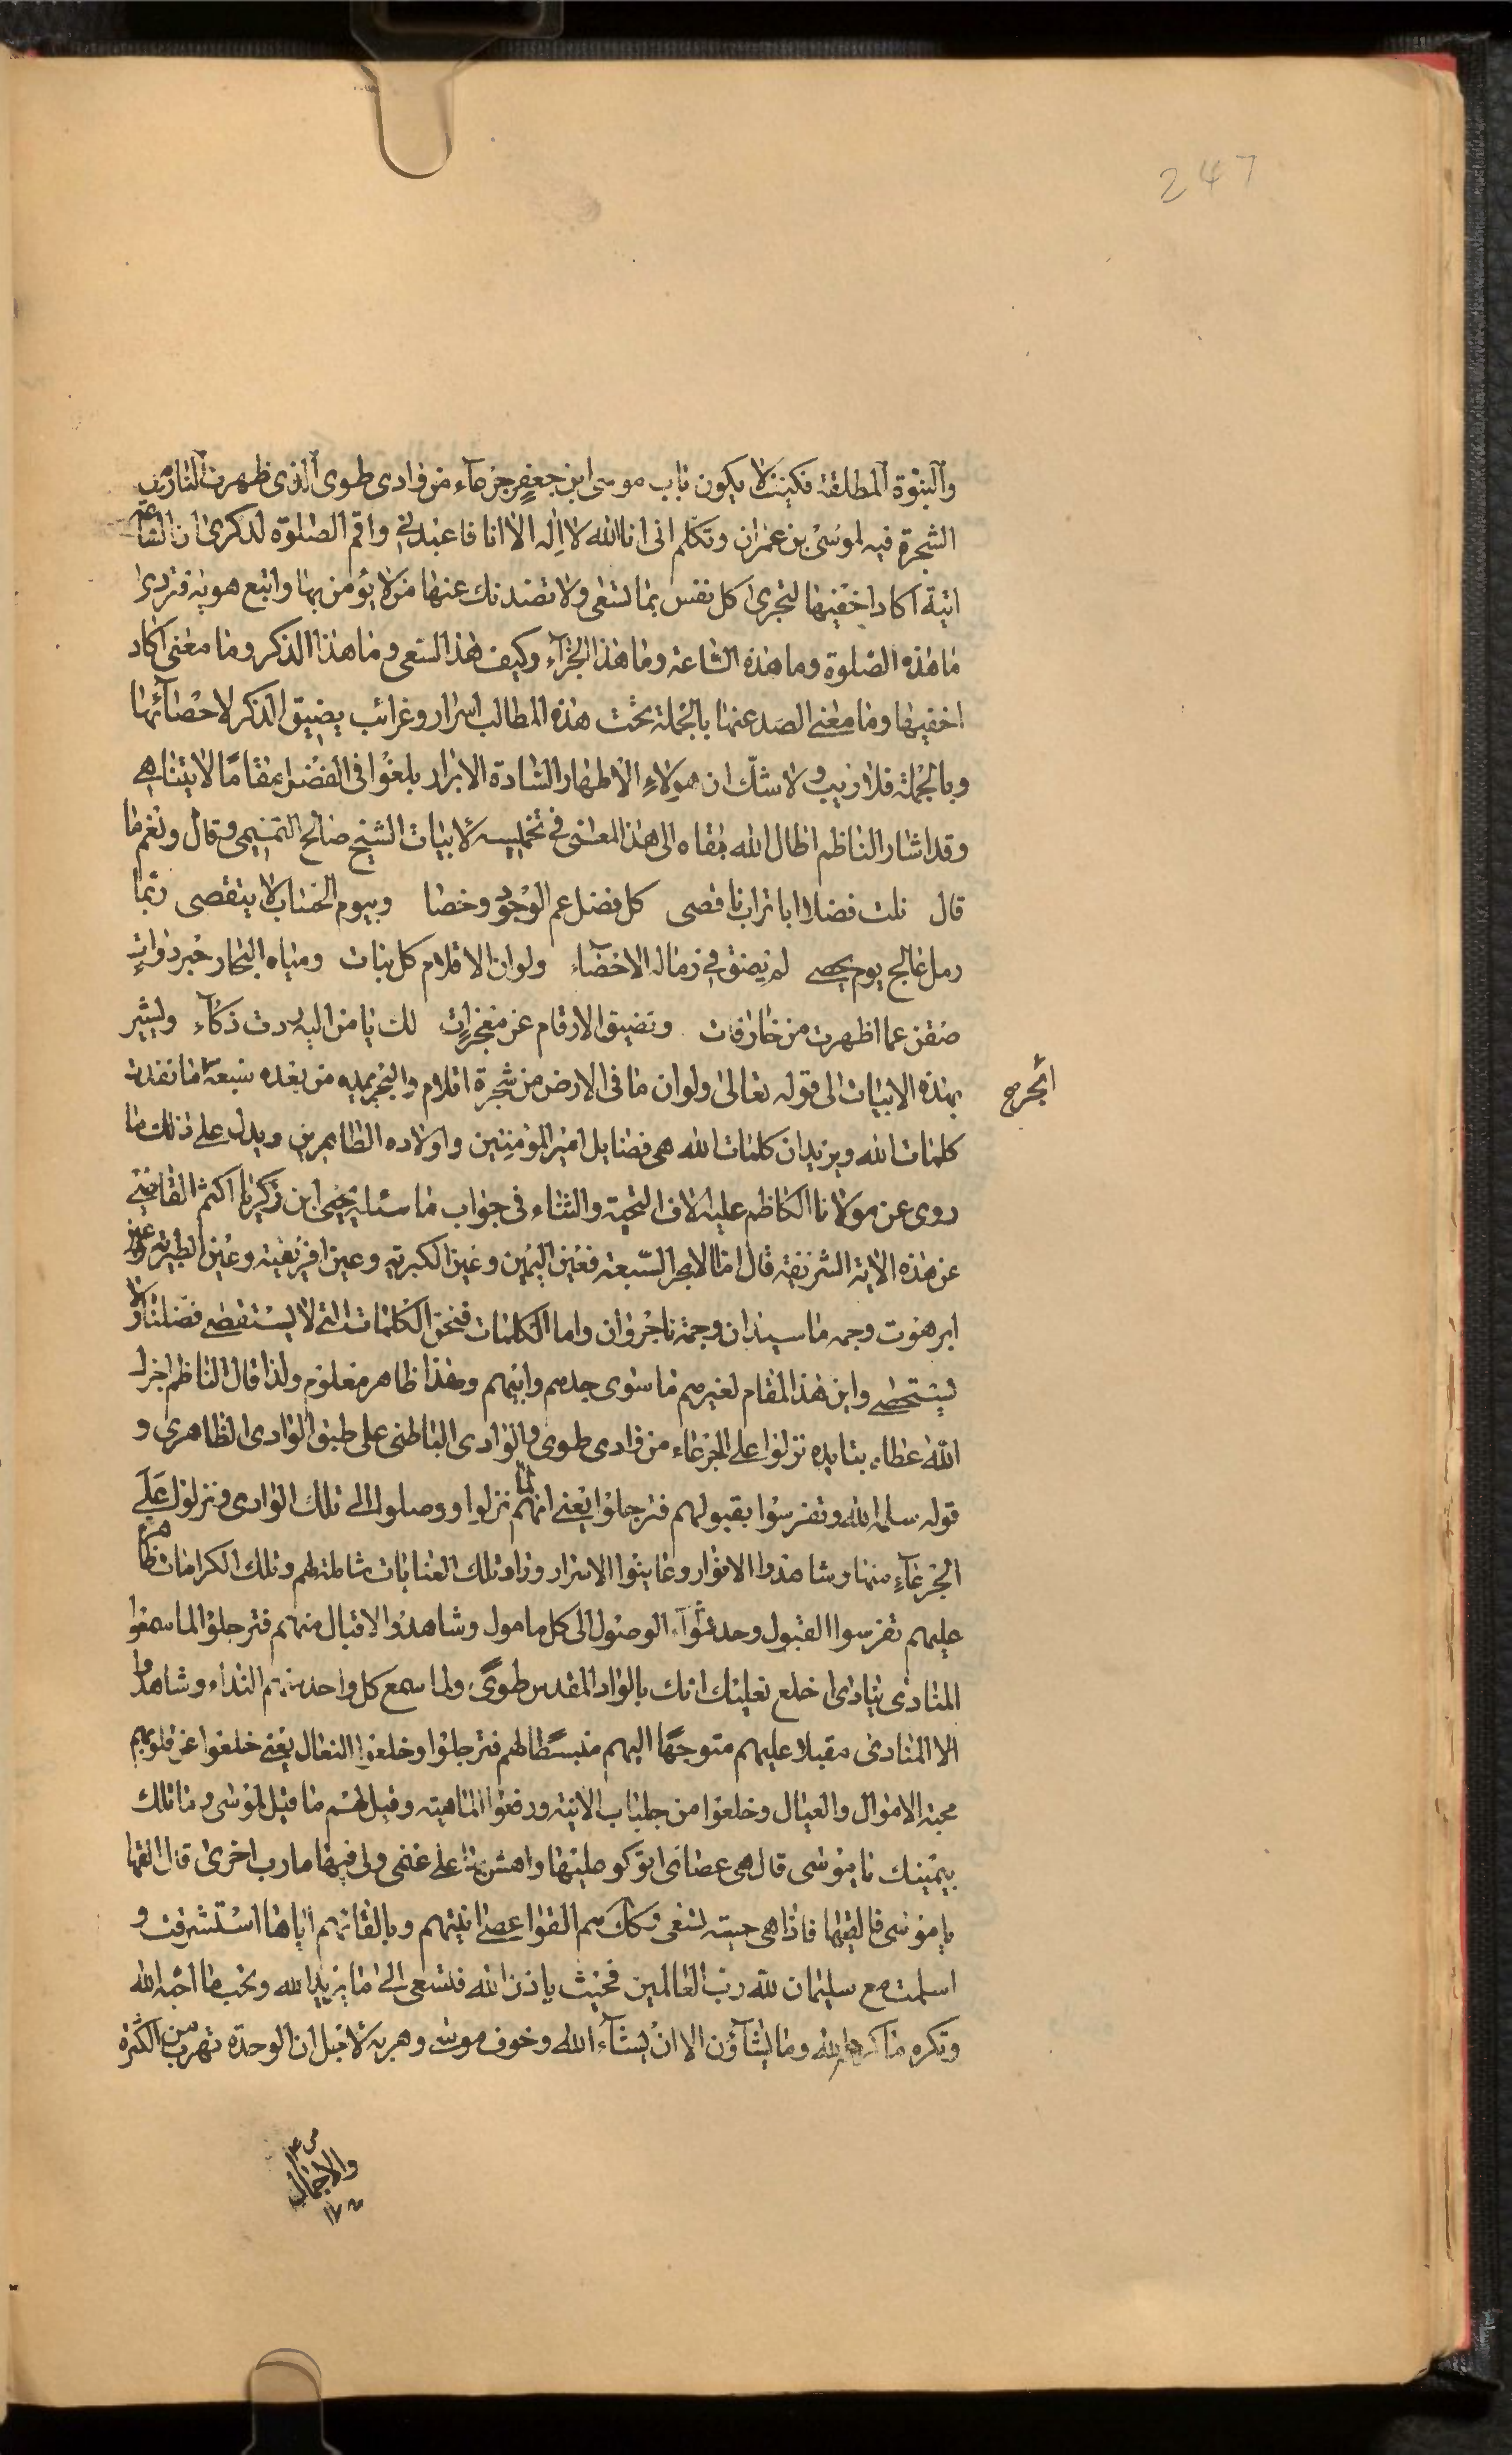 247
والنبوة المطلقة فكيف لا يكون باب موسى ابن جعفر جزعاء من وادى طوى الذى ظهرت النار من
الشجرة فيه لموسى بن عمران وتكلم انى انا الله لا اله الا انا فاعبدنى واقم الصلوة لذكرى ان الساعة
اتية اكاد اخفيها لتجرى كل نفس بما تسعى ولا تصدنك عنها من لا يؤمن بها واتبع هويه فتردى
ما هذه الصلوة وما هذه الساعة وما هذا الجزآء وكيف هذا السعى وما هذا الذكر وما معنى اكاد
اخفيها وما معنى الصد عنها بالجملة تحت هذه المطالب اسرار وغرائب يضيق الذكر لاحصائها
وبالجملة فلا ريب ولا شك ان هولاء الاطهار السادة الابرار بلغوا فى الفضل مقاما لا يتناهى
وقد اشار الناظم اطال الله بقاه الى هذا المعنى فى تخميسه لابيات الشيخ صالح التميمى وقال ونعم ما
قال نلت فضلا ابا تراب نا قصى كل فضل عم الوجود وخصا وبيوم الحساب لا يتقصى ربما
رمل عالج يوم يحصى لم يضق فى رماله الاحصاء ولو ان الاقلام كل نبات ومياه البحار حبر دوات
ضقن عما اظهرت من خارقات وتضيق الارقام عن معجزات لك يا من اليه ردت ذكآء ويشير
بهذه الابيات الى قوله تعالى ولو ان ما فى الارض من شجرة اقلام والبحر يمده من بعده سبعة ما نفدت
ابحر صح
كلمات الله ويريد ان كلمات الله هى فضايل امير المؤمنين واولاده الطاهرين ويدل على ذلك ما
روى عن مولانا الكاظم عليه الاف التحية والثناء فى جواب ما سئله يحيى ابن زكريا اكثم القاضى
عن هذه الاية الشريفة قال اما الابحر السبعة فعين اليمين وعين الكبريه وعين افريقية وعين الطبرية وعين
ابرهوت وجمه ماسيدان وجمة ناجروان واما الكلمات فنحن الكلمات التى لا يستقصى فضلنا ولا
يستحصى واين هذا المقام لغيرهم ما سوى جدهم وابيهم وهذا ظاهر معلوم ولذا قال الناظم اجزل
الله عطاه بتايده نزلوا على الجزعاء من وادى طوى والوادى الباطنى على طبق الوادى الظاهرى و
قوله سلمه الله وتفرسوا بقبولهم فترجلوا يعنى انهم لما نزلوا ووصلوا الى تلك الوادى ونزلوا على
الجزعآء منها وشاهدوا الانوار وعاينوا الاسرار وراو تلك العنايات شاملة لهم وتلك الكرامات ظاهرة
عليهم تفرسوا القبول وحدثوآ الوصول الى كل مامول وشاهدوا الاقبال منهم فترجلوا لما سمعوا
المنادى ينادى اخلع نعليك انك بالواد المقدس طوى ولما سمع كل واحد منهم النداء وشاهدوا
الا المنادى مقبلا عليهم متوجها اليهم منبسطا لهم فترجلوا وخلعوا النعال يعنى خلعوا عن قلوبهم
محبة الاموال والعيال وخلعوا من جلباب الانية ورفعوا الماهية وقيل لهم ما قيل لموسى وما تلك
بيمينك يا موسى قال هى عصاى اتوكو عليها واهش بها على غنمى ولى فيها مارب اخرى قال القها
يا موسى فالقيها فاذا هى حية تسعى وكك هم القوا عصا انيتهم وبالقائهم اياها استشرفت و
اسلمت مع سليمان لله رب العالمين فحيث ياذن الله فتسعى الى ما يريد الله وتحب ما احبه الله
وتكره ما كرهه الله وما يشآؤن الا ان يشآء الله وخوف موسى وهربه لاجل ان الوحدة تهرب من الكثرة
والاجمال
١٧